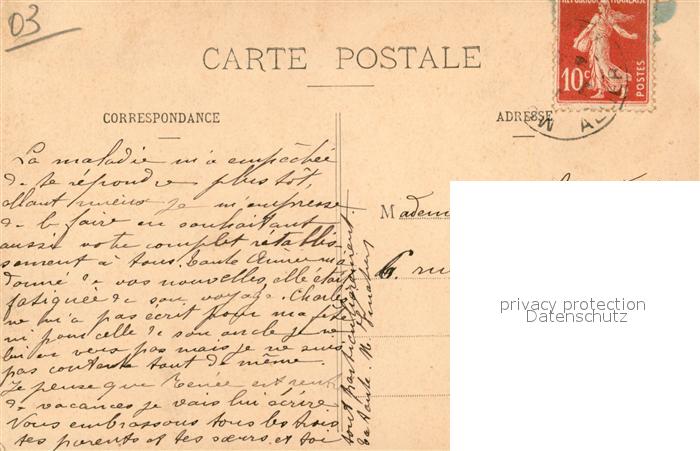 03
CARTE POSTALE
RÉPUBLIQUE FRANÇAISE
10c
POSTES
CORRESPONDANCE
ADRESSE
La maladie m'a empêchée
de te répondre plus tôt,
allant mieux je m'empresse
de le faire en souhaitant
aussi votre complet rétablis-
sement à tous. Tante m'a
donné de vos nouvelles, elle était
fatiguée de son voyage. Charles
ne m'a pas écrit pour ma fête
ni pour celle de son oncle je ne
lui en veux pas mais je ne suis
pas contente tout de même.
Je pense que Renée est
de vacances je vais lui écrire
Vous embrassons tous les trois
tes parents et tes sœurs et toi
tout particulièrement.
ta tante. M.
Madem
6. ru
privacy protection
Datenschutz